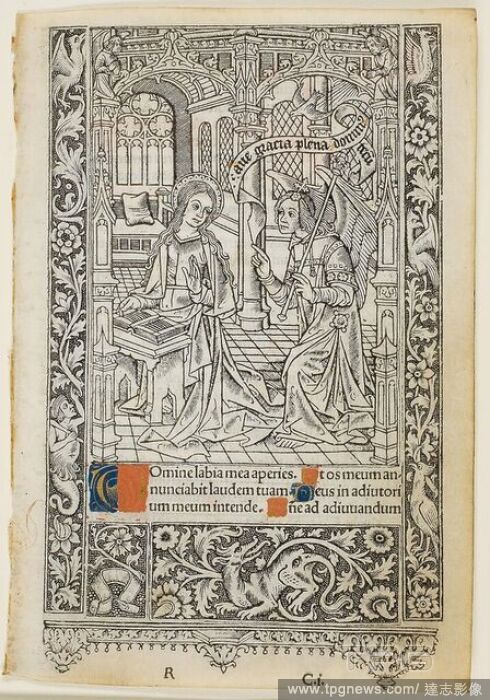 aue gracia plena domin⁹
tecu
Omine labia mea aperies. Et os meum an-
nunciabit laudem tuam Deus in adiutori
um meum intende. Dñe ad adiuuandum
R
C.i.
www.tpgnews.com/ 達志影像